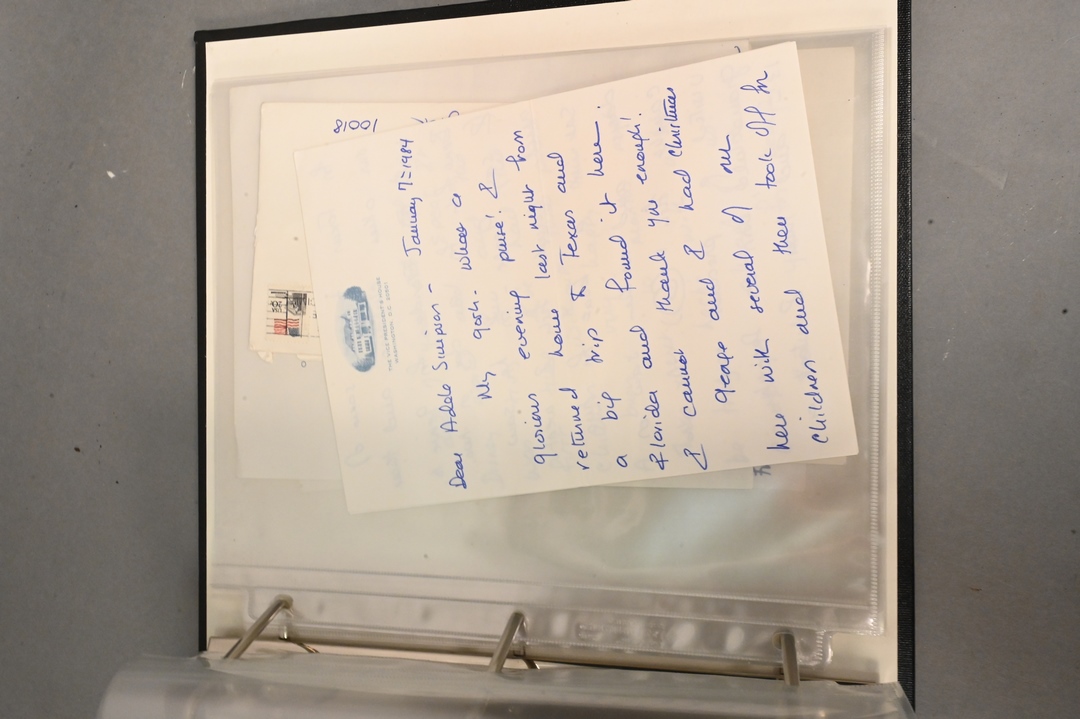 THE VICE PRESIDENT'S HOUSE
WASHINGTON, D.C. 20501
January 7=1984
Dear Adele Simpson -
My gosh - what a
glorious evening purse! I
returned home last night from
a big trip to Texas and
Florida and found it here.
I cannot thank you enough!
George and I had Christmas
here with several of our
children and then took off for
10018
USA 20c